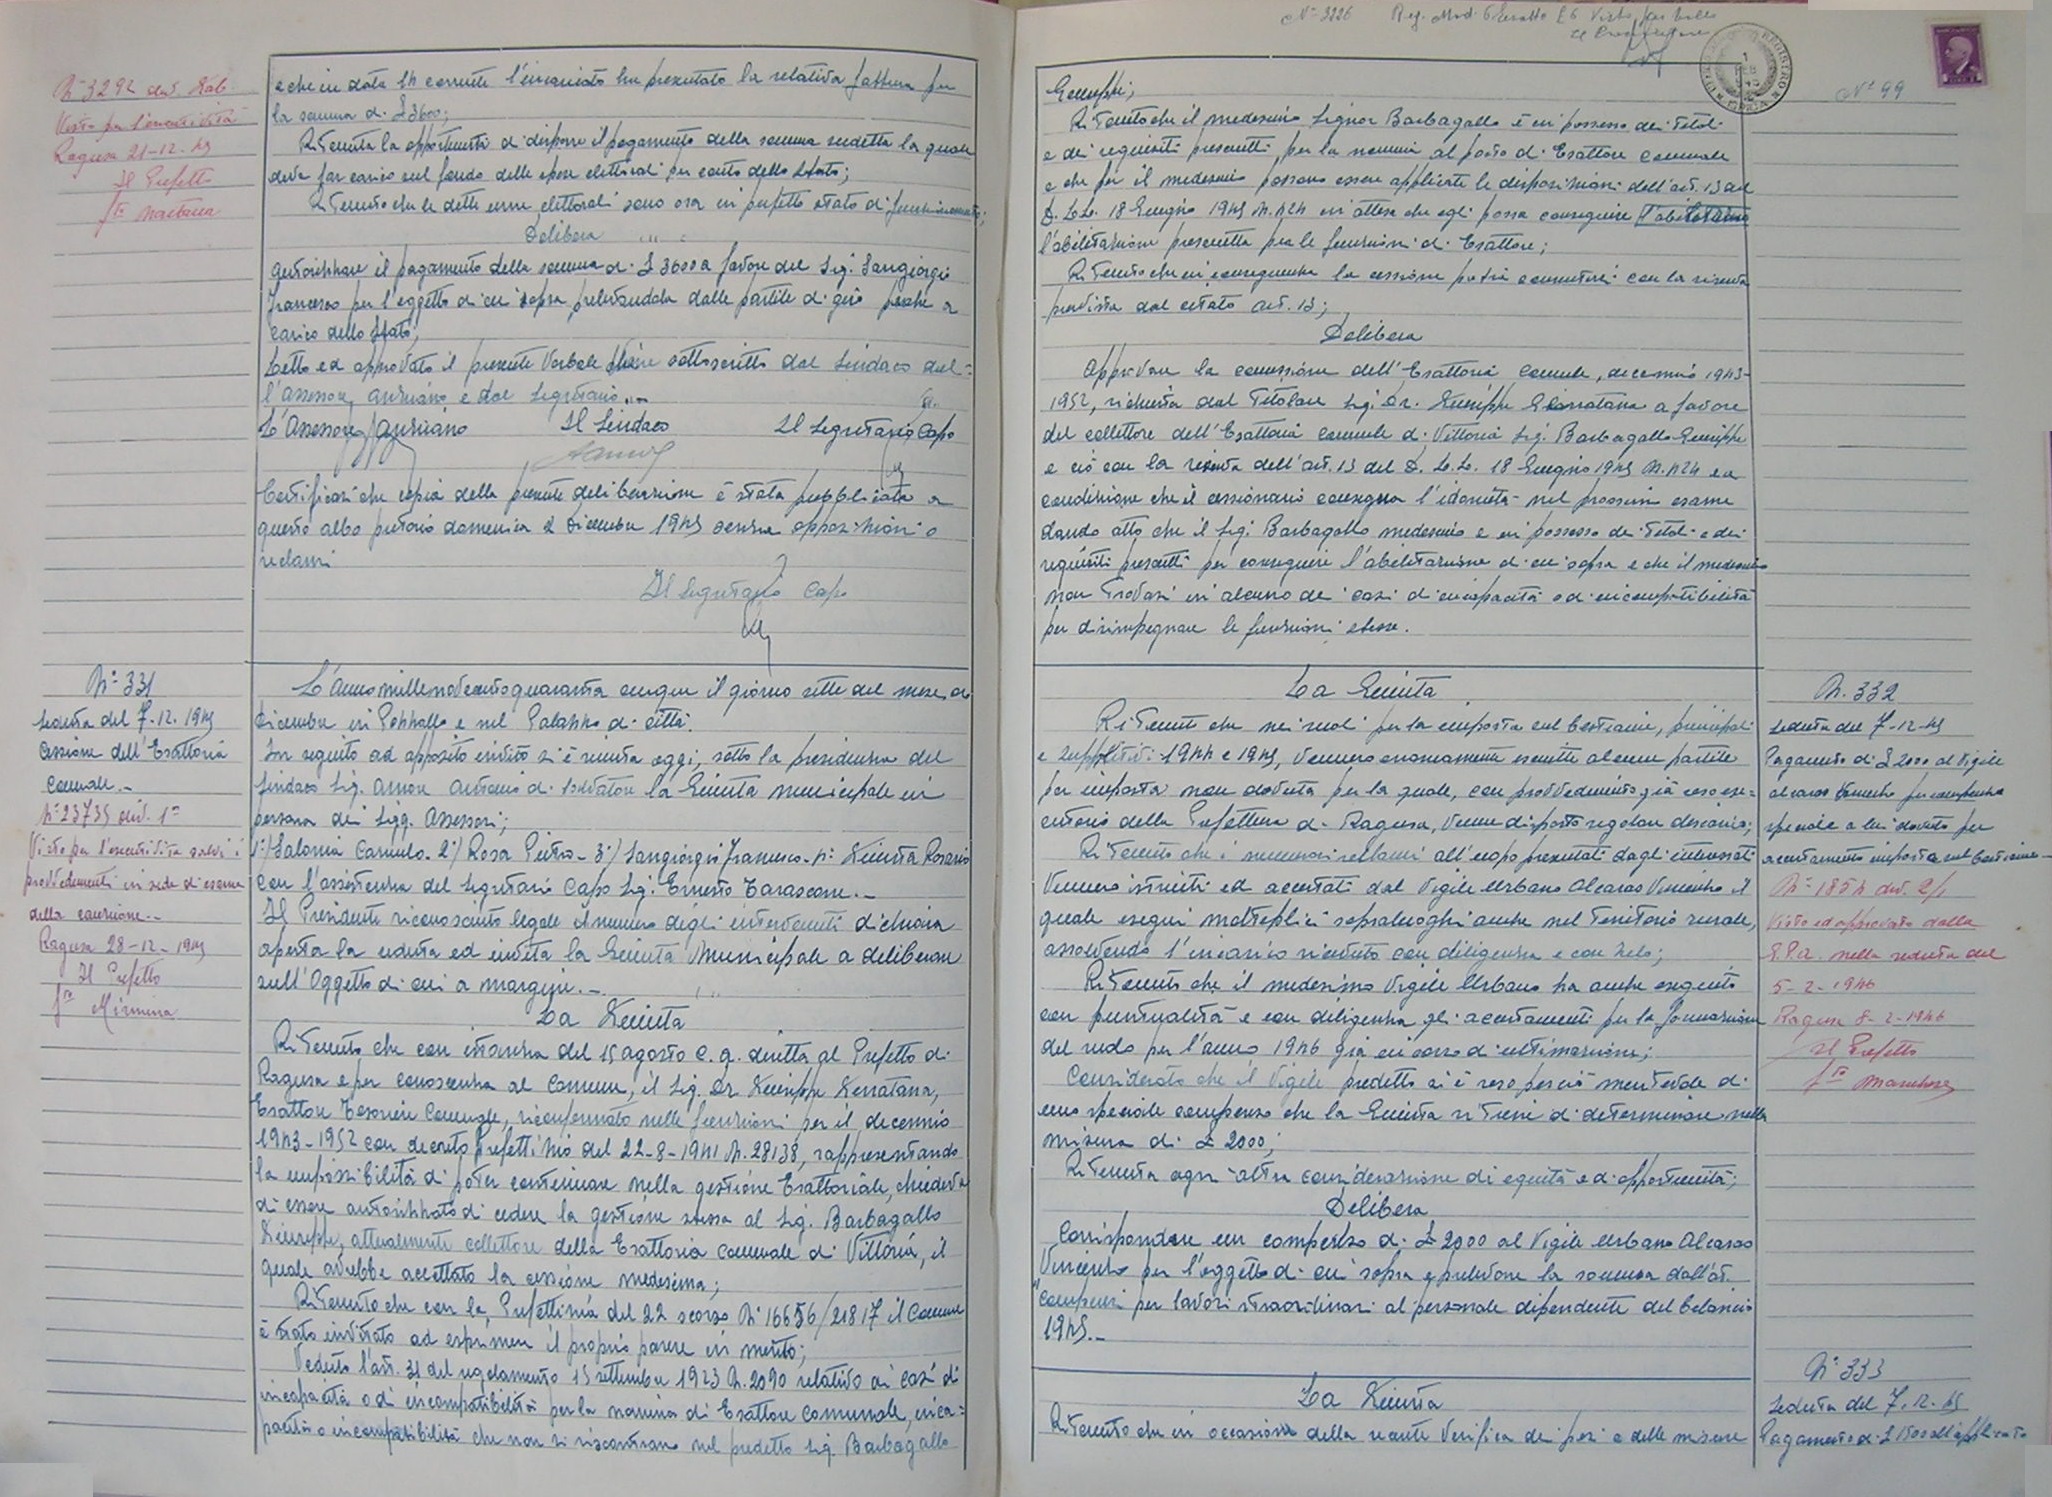 N° 3292 div. Gab
Visto per l'esecutività
Ragusa 21-12-45
Il Prefetto
f.to
e che in data 14 corrente l'incaricato ha presentato la relativa fattura per
la somma di £ 3600;
Ritenuta la opportunità di disporre il pagamento della somma suddetta la quale
deve far carico sul fondo delle spese elettorali per conto dello Stato;
Ritenuto che le dette urne elettorali sono ora in perfetto stato di funzionamento;
Delibera
autorizzare il pagamento della somma di £ 3600 a favore del Sig. Sangiorgio
Francesco per l'oggetto di cui sopra prelevandola dalle partite di giro poste a
carico dello Stato;
Letto ed approvato il presente Verbale viene sottoscritto dal Sindaco dal-
l'Assessore anziano e dal Segretario.
L'Assessore anziano Il Sindaco Il Segretario Capo
Certificasi che copia della presente deliberazione è stata pubblicata a
questo albo pretorio domenica 2 dicembre 1945 senza opposizioni o
reclami
Il Segretario Capo
N° 331
Seduta del 7-12-1945
Cessione dell'Esattoria
Comunale.-
N° 23735 div. 1ª
Visto per l'esecutività salvi i
provvedimenti in sede di esame
della cauzione.-
Ragusa 28-12-1945
Il Prefetto
f.to Mirmina
L'Anno millenovecentoquaranta cinque il giorno sette del mese di
Dicembre in Pozzallo e nel Palazzo di città.
In seguito ad apposito invito si è riunita oggi, sotto la presidenza del
Sindaco Sig. Amore Antonio di Salvatore la Giunta municipale in
persona dei Sigg. Assessori;
1°) Salonia Carmelo - 2°) Rosa Pietro - 3°) Sangiorgio Francesco - 4° Giunta Rosario
con l'assistenza del Segretario Capo Sig. Ernesto Tarascone.-
Il Presidente riconosciuto legale il numero degli intervenuti dichiara
aperta la seduta ed invita la Giunta Municipale a deliberare
sull'Oggetto di cui a margine.-
La Giunta
Ritenuto che con istanza del 15 agosto c.a. diretta al Prefetto di
Ragusa e per conoscenza al Comune, il Sig. Dr Giuseppe Serratana,
Esattore Tesoriere Comunale, riconfermato nelle funzioni per il decennio
1943-1952 con decreto Prefettizio del 22-8-1941 N. 28138, rappresentando
la impossibilità di poter continuare nella gestione Esattoriale, chiedeva
di essere autorizzato di cedere la gestione stessa al Sig. Barbagallo
Giuseppe, attualmente collettore della Esattoria comunale di Vittoria, il
quale avrebbe accettato la cessione medesima;
Ritenuto che con la Prefettizia del 22 scorso N° 16656/21817 il Comune
è stato invitato ad esprimere il proprio parere in merito;
Veduto l'art. 31 del regolamento 15 settembre 1923 N. 2090 relativo ai casi di
incapacità o di incompatibilità per la nomina di Esattore comunale, inca-
pacità o incompatibilità che non si riscontrano nel predetto Sig. Barbagallo
N° 3226 Reg. Mod. 6 Esatto £6 Visto per bollo
N° 99
Giuseppe;
Ritenuto che il medesimo Signor Barbagallo è in possesso dei titoli
e dei requisiti prescritti, per la nomina al posto di Esattore comunale
e che per il medesimo possono essere applicate le disposizioni dell'art. 13 del
D.L.L. 18 Giugno 1945 N. 424 in attesa che egli possa conseguire
l'abilitazione prescritta per le funzioni di Esattore;
Ritenuto che in conseguenza la cessione potrà consentirsi con la riserva
prevista dal citato art. 13;
Delibera
Approvare la concessione dell'Esattoria Comunale, decennio 1943-
1952, richiesta dal Titolare Sig. Dr. Giuseppe Serratana a favore
del collettore dell'Esattoria comunale di Vittoria Sig. Barbagallo Giuseppe
e ciò con la riserva dell'art. 13 del D.L.L. 18 Giugno 1945 N. 424 ed a
condizione che il cessionario consegua l'idoneità nel prossimo esame
dando atto che il Sig. Barbagallo medesimo è in possesso dei titoli e dei
requisiti prescritti per conseguire l'abilitazione di cui sopra e che il medesimo
non trovasi in alcuno dei casi d'incapacità o di incompatibilità
per disimpegnare le funzioni stesse.
La Giunta
Ritenuto che nei ruoli per la imposta sul bestiame, principali
e suppletivi 1944 e 1945, vennero erroneamente iscritte alcune partite
per imposta non dovuta per la quale, con provvedimento già reso ese-
cutorio dalla Prefettura di Ragusa, venne disposto regolare discarico;
Ritenuto che i numerosi reclami all'uopo presentati dagli interessati
vennero istruiti ed accertati dal Vigile Urbano Alcaras Vincenzo il
quale eseguì molteplici sopraluoghi anche nel territorio rurale,
assolvendo l'incarico ricevuto con diligenza e con zelo;
Ritenuto che il medesimo Vigile Urbano ha anche eseguito
con puntualità e con diligenza gli accertamenti per la formazione
del ruolo per l'anno 1946 già in corso di ultimazione;
Considerato che il Vigile predetto si è reso perciò meritevole di
uno speciale compenso che la Giunta ritiene di determinare nella
misura di £ 2000;
Ritenuta ogni altra considerazione di equità e di opportunità;
Delibera
Corrispondere un compenso di £ 2000 al Vigile Urbano Alcaras
Vincenzo per l'oggetto di cui sopra e prelevare la somma dall'art.
"compensi per lavori straordinari al personale dipendente del bilancio
1945.-
N. 332
Seduta del 7-12-45
Pagamento di £ 2000 al Vigile
Alcaras Vincenzo per compenso
speciale a lui dovuto per
accertamento imposta sul bestiame-
N° 1854 div. 2/1
Visto ed approvato dalla
G.P.A. nella seduta del
5-2-1946
Ragusa 8-2-1946
Il Prefetto
f.to
La Giunta
Ritenuto che in occasione della recente Verifica dei pesi e delle misure
N° 333
Seduta del 7.12.45
Pagamento di £ 1500 all'applicato